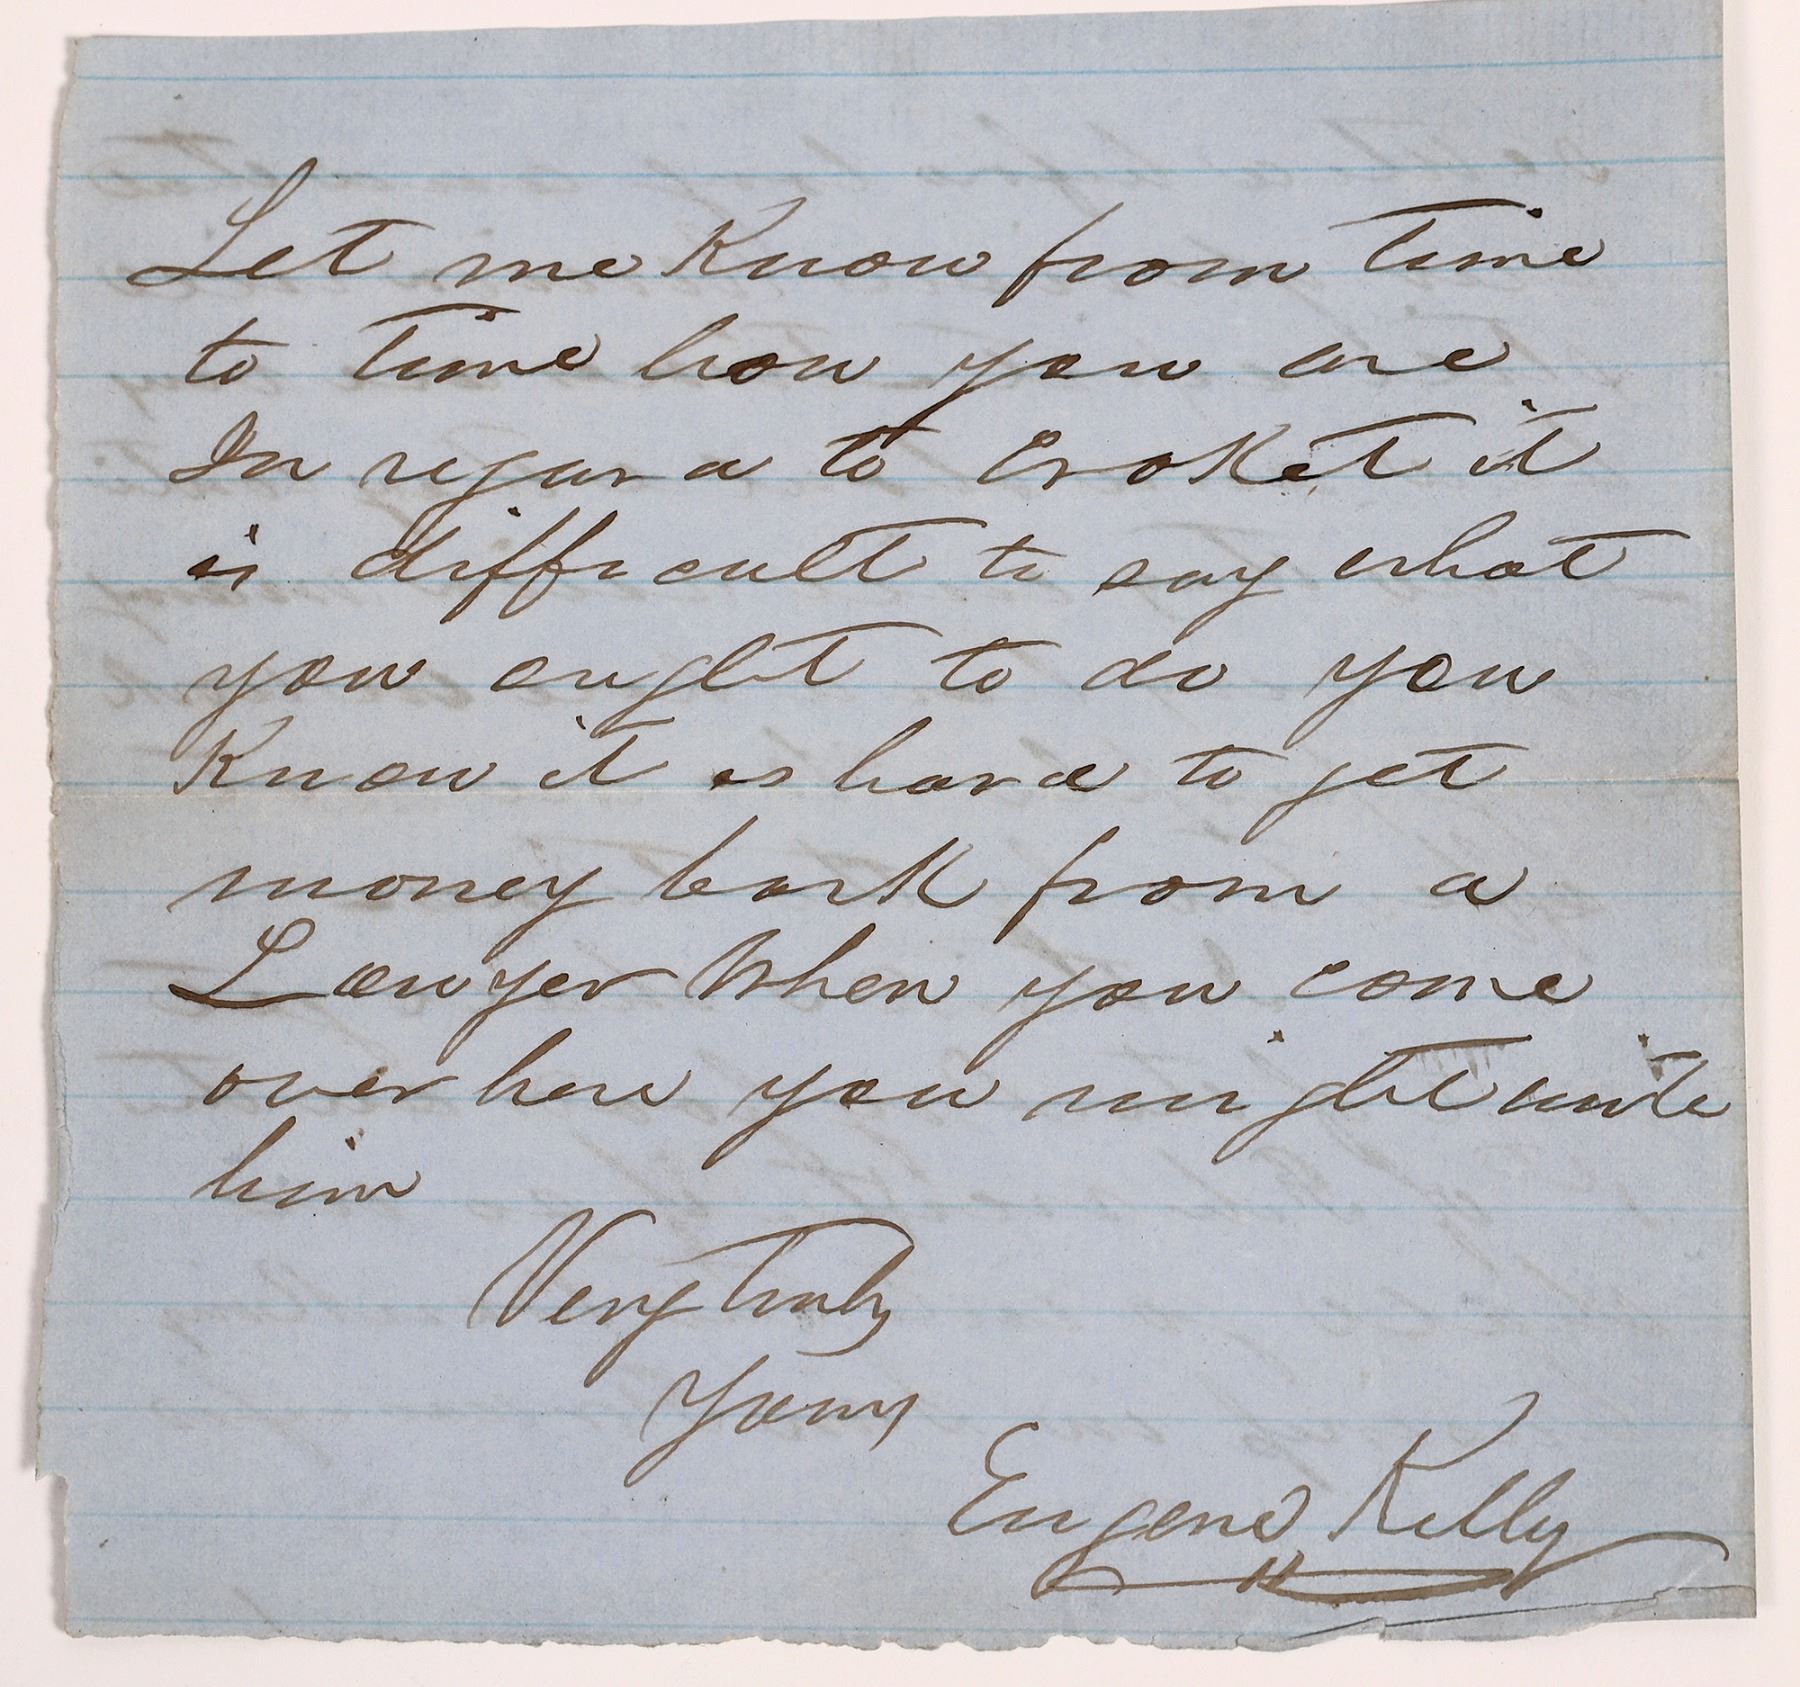 Let me Know from Time
to Time how you are
In regard to Croket it
is difficult to say what
you ought to do you
Know it is hard to get
money back from a
Lawyer When you come
over here you might write
him
Very truly
Yours
Eugene Kelly